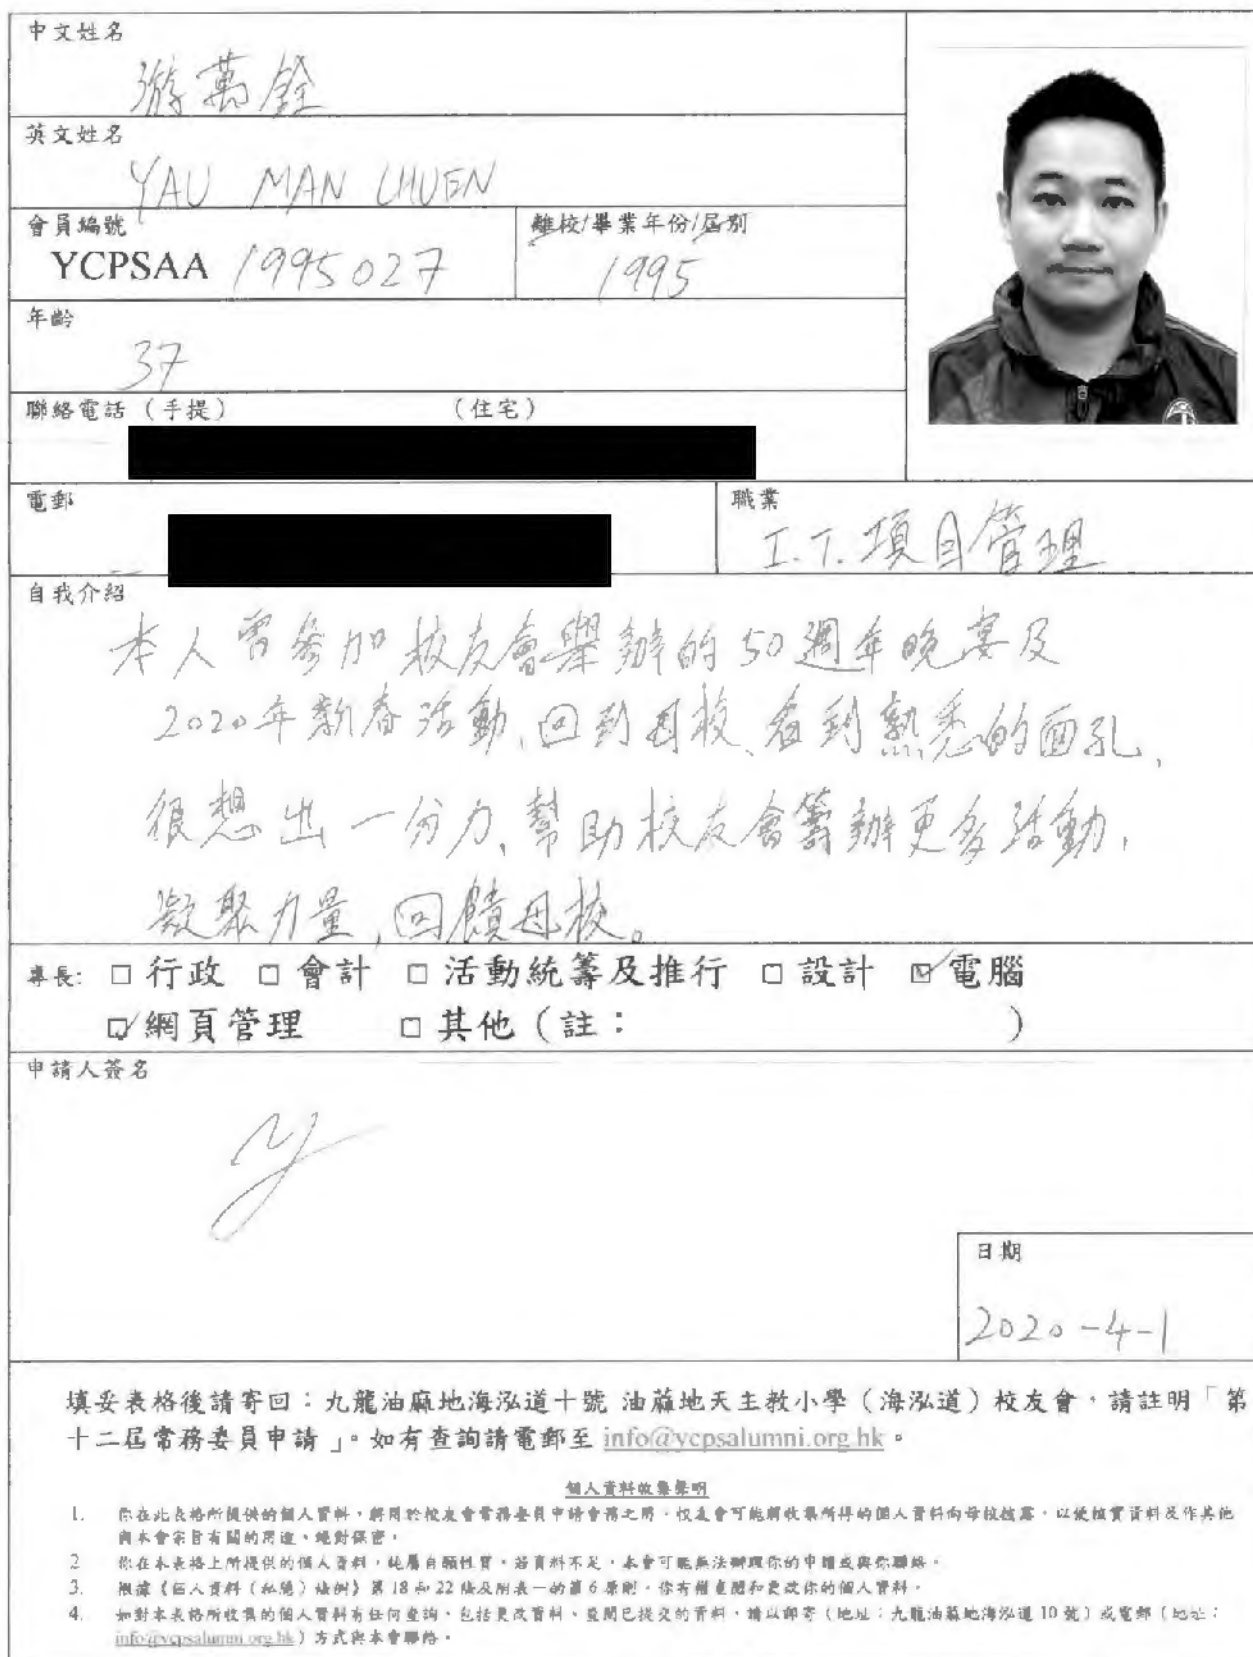 中文姓名
游萬銓
英文姓名
YAU MAN CHUEN
會員編號
YCPSAA 1995027
離校/畢業年份/屆別
1995
年齡
37
聯絡電話（手提） （住宅）
電郵
職業
I.T. 項目管理
自我介紹
本人曾參加校友會舉辦的50週年晚宴及
2020年新春活動,回到母校、看到熟悉的面孔,
很想出一分力、幫助校友會籌辦更多活動,
凝聚力量,回饋母校。
專長: □ 行政 □ 會計 □ 活動統籌及推行 □ 設計 ☑ 電腦
☑ 網頁管理 □ 其他（註： ）
申請人簽名
日期
2020-4-1
填妥表格後請寄回：九龍油麻地海泓道十號 油蔴地天主教小學（海泓道）校友會，請註明「第
十二屆常務委員申請」。如有查詢請電郵至 info@ycpsalumni.org.hk。
個人資料收集聲明
1. 你在此表格所提供的個人資料，將用於校友會常務委員申請會務之用，校友會可能將收集所得的個人資料向母校披露，以便核實資料及作其他
與本會宗旨有關的用途，絕對保密。
2 你在本表格上所提供的個人資料，純屬自願性質，若資料不足，本會可能無法辦理你的申請或與你聯絡。
3. 根據《個人資料（私隱）條例》第 18 和 22 條及附表一的第 6 原則，你有權查閱和更改你的個人資料。
4. 如對本表格所收集的個人資料有任何查詢，包括更改資料、查閱已提交的資料，請以郵寄（地址：九龍油蔴地海泓道 10 號）或電郵（地址：
info@ycpsalumni.org.hk）方式與本會聯絡。